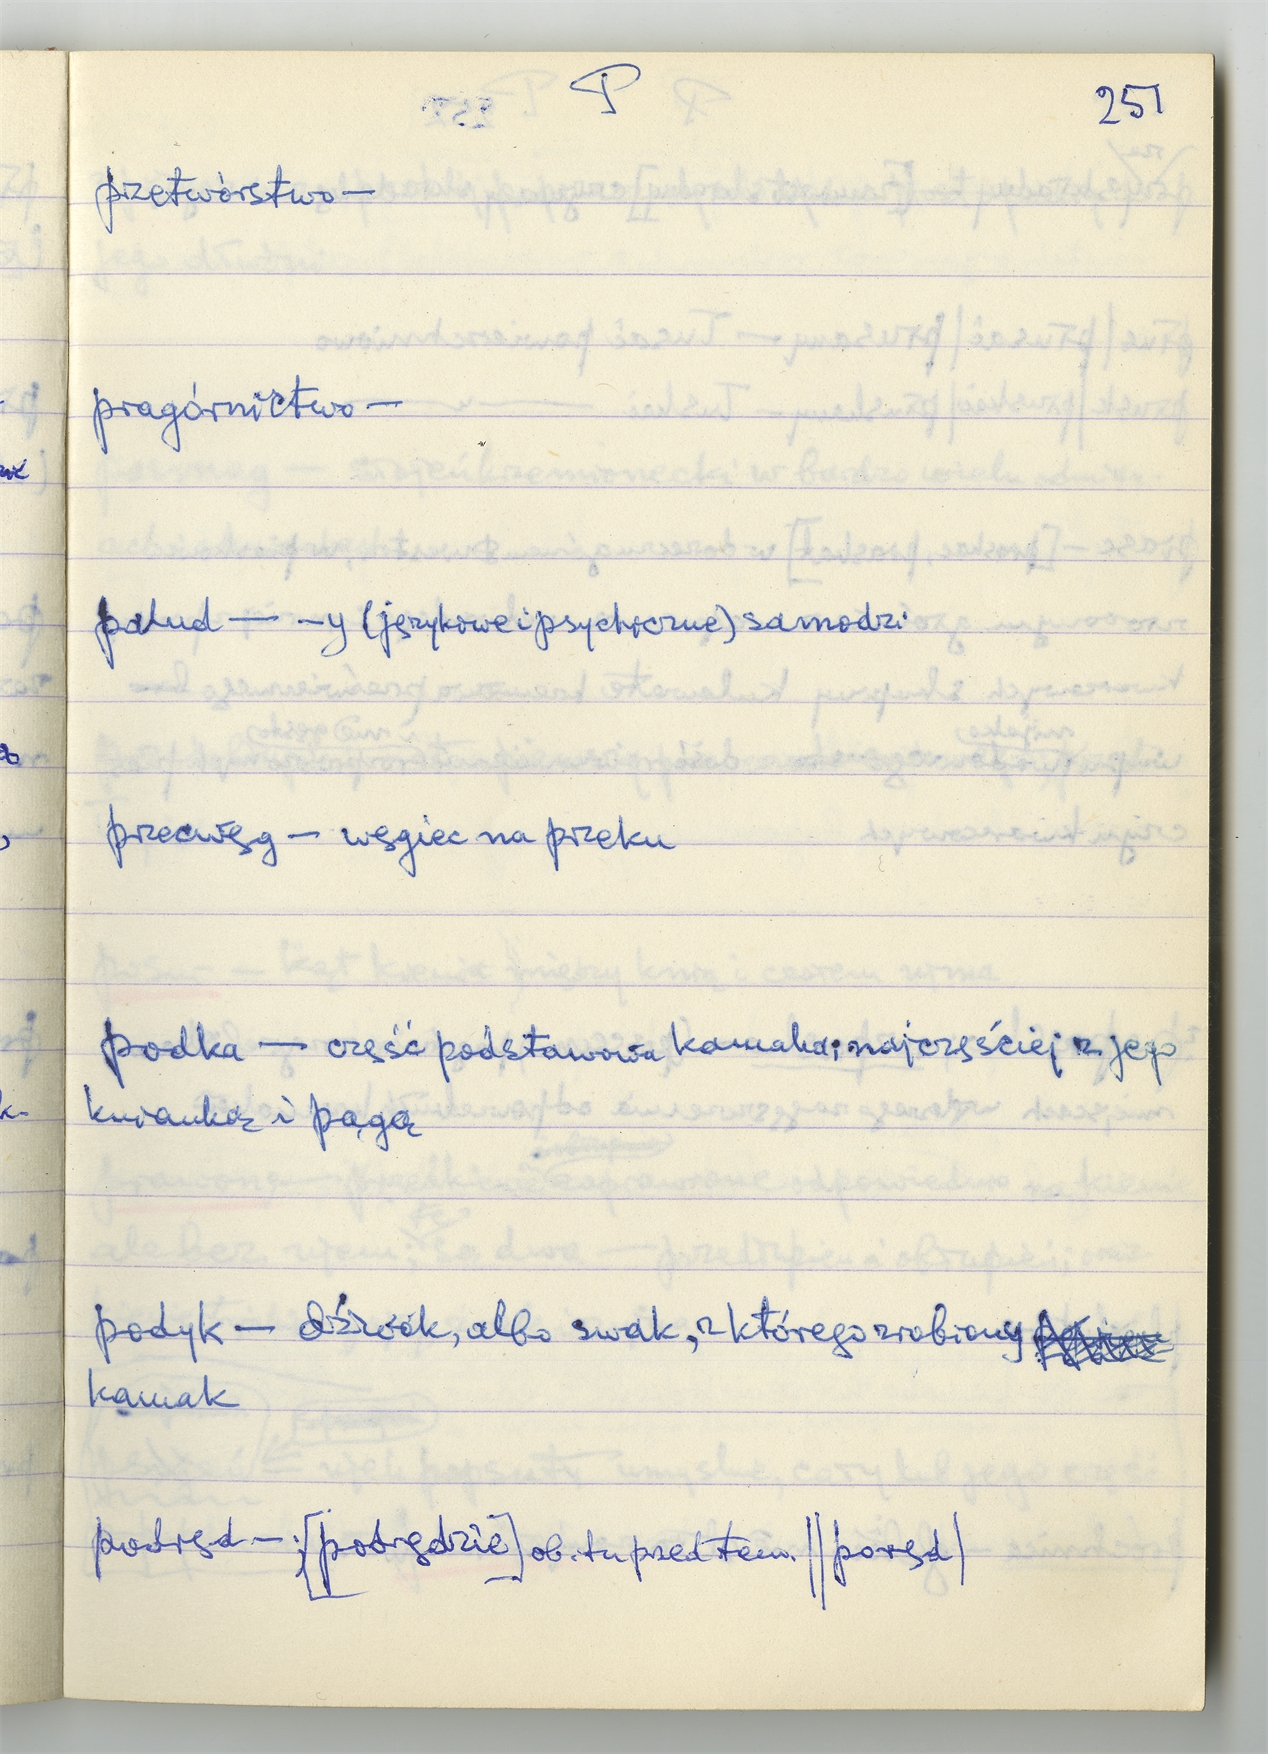 P
251
przetwórstwo —
pragórnictwo —
palud — -y (językowe i psychiczne) samodzi
przecwęg — węgiec na przeku
podka — część podstawowa kamaka; najczęściej z jego
knianką i pągą
podyk — dźwok, albo swak, z którego zrobiony
kamak
podręd — [podrędzie] ob. tu przedtem. || poręd |